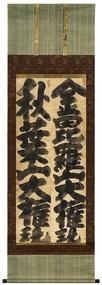 金毘羅大権現
秋葉大権現